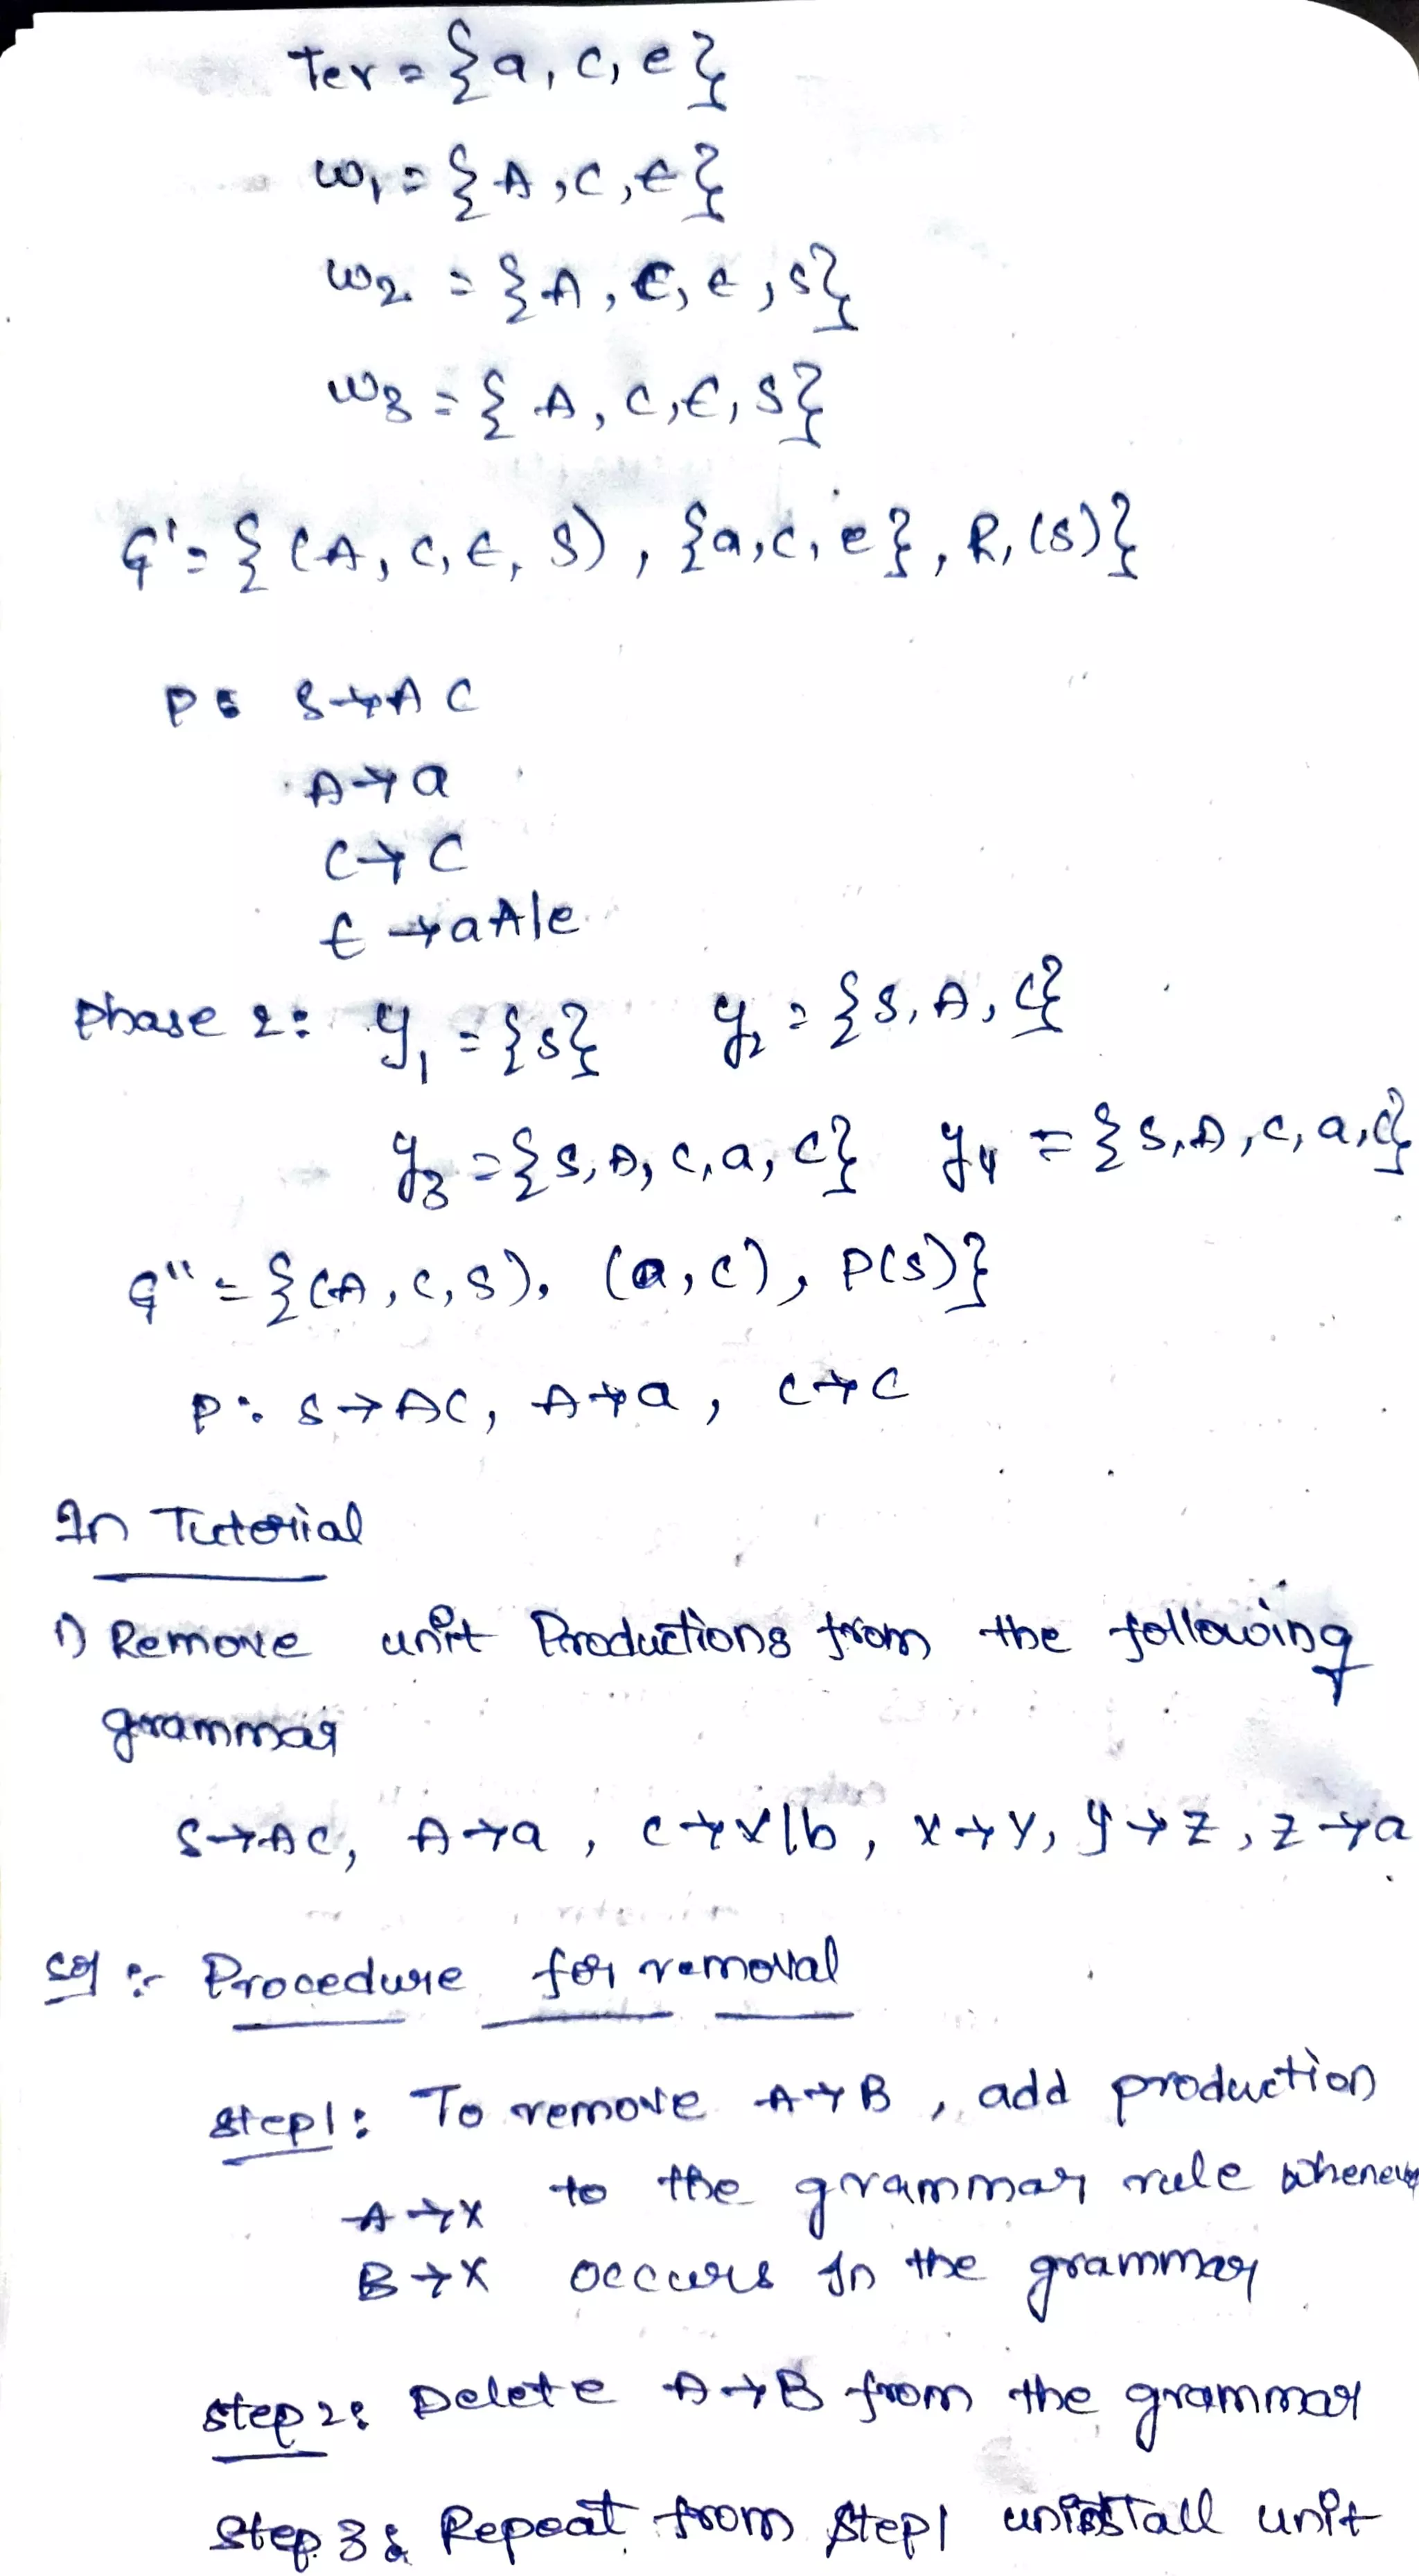 Ter = {a, c, e}
W1 = {A, C, E}
W2 = {A, C, E, S}
W3 = {A, C, E, S}
G' = {(A, C, E, S), {a, c, e}, R, (S)}
P: S→AC
A→a
C→c
E→aA|e
Phase 2: y1 = {S} y2 = {S, A, C}
y3 = {S, A, C, a, c} y4 = {S, A, C, a, c}
G'' = {(A, C, S), (a, c), P(S)}
P: S→AC, A→a, C→c
In Tutorial
1) Remove unit Productions from the following
grammar
S→AC, A→a, C→X|b, X→Y, Y→Z, Z→a
Sol :- Procedure for removal
Step1: To remove A→B, add production
A→X to the grammar rule whenever
B→X occurs in the grammar
Step 2: Delete A→B from the grammar
Step 3: Repeat from Step1 unit